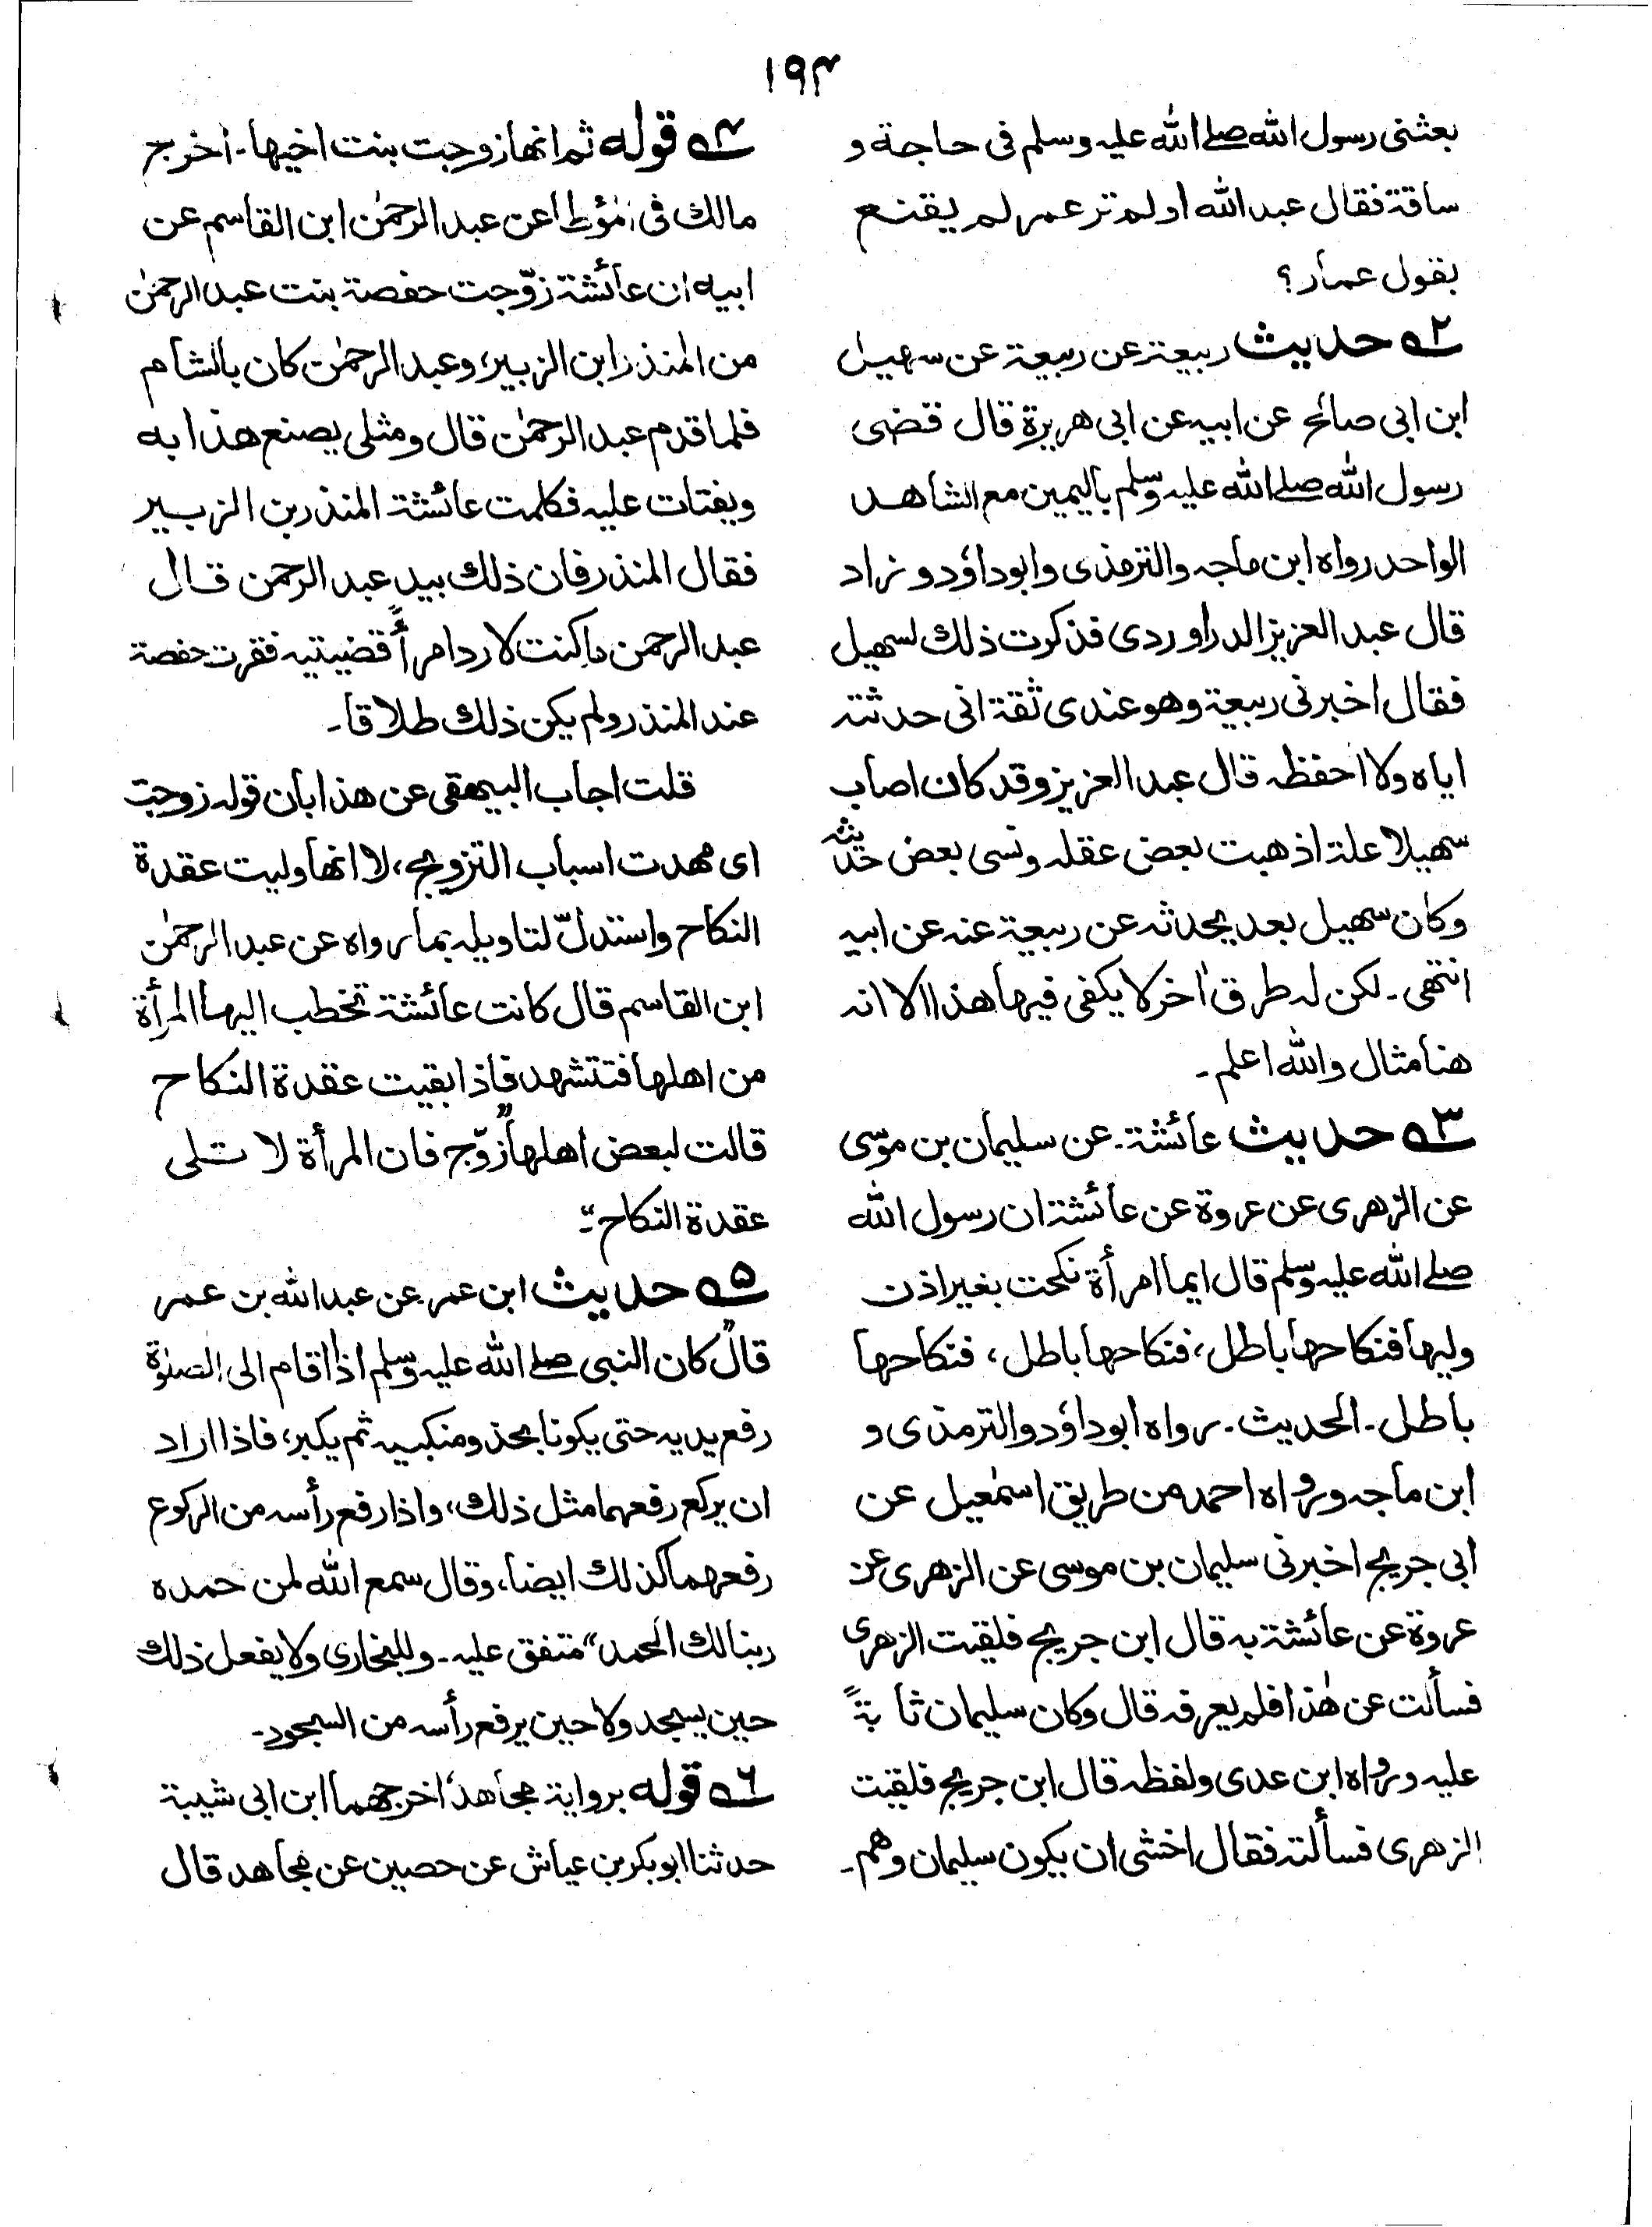 ۱۹۴
بعثنی رسول الله صلے الله علیہ وسلم فی حاجۃ و
ساقۃ فقال عبد الله اولم تر عمر لم یقنع
بقول عمار؟
۲؎ حدیث ربیعۃ عن ربیعۃ عن سھیل
ابن ابی صالح عن ابیہ عن ابی ھریرۃ قال قضی
رسول الله صلے الله علیہ وسلم بالیمین مع الشاھد
الواحد رواہ ابن ماجہ والترمذی وابوداؤد و زاد
قال عبد العزیز الدراوردی فذکرت ذلك لسھیل
فقال اخبرنی ربیعۃ وھو عندی ثقۃ انی حدثتہ
ایاہ ولا احفظہ قال عبد العزیز وقد کان اصاب
سھیلا علۃ اذھبت بعض عقلہ ونسی بعض حدیثہ
وکان سھیل بعد یحدثہ عن ربیعۃ عنہ عن ابیہ
انتھی۔ لکن لہ طرق اٰخر لا یکفی فیھا ھذا الا انہ
ھنا مثال والله اعلم۔
۳؎ حدیث عائشۃ۔ عن سلیمان بن موسی
عن الزھری عن عروۃ عن عائشۃ ان رسول الله
صلے الله علیہ وسلم قال ایما امرأۃ نکحت بغیر اذن
ولیھا فنکاحھا باطل، فنکاحھا باطل، فنکاحھا
باطل۔ الحدیث۔ رواہ ابوداؤد والترمذی و
ابن ماجہ ورواہ احمد من طریق اسمٰعیل عن
ابی جریج اخبرنی سلیمان بن موسی عن الزھری عن
عروۃ عن عائشۃ بہ قال ابن جریج فلقیت الزھری
فسألت عن ھٰذا فلم یعرفہ قال وکان سلیمان
علیہ ورواہ ابن عدی ولفظہ قال ابن جریج فلقیت
الزھری فسألتہ فقال اخشی ان یکون سلیمان وھم۔
۴؎ قولہ ثم انھا زوجت بنت اخیھا۔ اخرج
مالك فی المؤطا عن عبد الرحمٰن ابن القاسم عن
ابیہ ان عائشۃ زوّجت حفصۃ بنت عبد الرحمٰن
من المنذر ابن الزبیر، وعبد الرحمٰن کان بالشام
فلما قدم عبد الرحمٰن قال ومثلی یصنع ھذا بہ
ویفتات علیہ فکلمت عائشۃ المنذر بن الزبیر
فقال المنذر فان ذلك بید عبد الرحمن قال
عبد الرحمن ما کنت لارد امرأً قضیتیہ فقرت حفصۃ
عند المنذر ولم یکن ذلك طلاقا۔
قلت اجاب البیھقی عن ھذا بان قولہ زوجت
ای مھدت اسباب التزویج، لا انھا ولیت عقدۃ
النکاح واستدلّ لتاویلہ بما رواہ عن عبد الرحمٰن
ابن القاسم قال کانت عائشۃ تخطب الیھا المرأۃ
من اھلھا فتتشھد فاذا بقیت عقدۃ النکاح
قالت لبعض اھلھا "زوّج فان المرأۃ لا تلی
عقدۃ النکاح"۔
۵؎ حدیث ابن عمر عن عبد الله بن عمر
قال "کان النبی صلے الله علیہ وسلم اذا قام الی الصلوٰۃ
رفع یدیہ حتی یکونا بحذو منکبیہ ثم یکبر، فاذا اراد
ان یرکع رفعھما مثل ذلك، واذا رفع رأسہ من الرکوع
رفعھما کذلك ایضا، وقال سمع الله لمن حمدہ
ربنا لك الحمد" متفق علیہ۔ وللبخاری ولا یفعل ذلك
حین یسجد ولا حین یرفع رأسہ من السجود۔
۶؎ قولہ بروایۃ مجاھد، اخرجھما ابن ابی شیبۃ
حدثنا ابوبکر بن عیاش عن حصین عن مجاھد قال